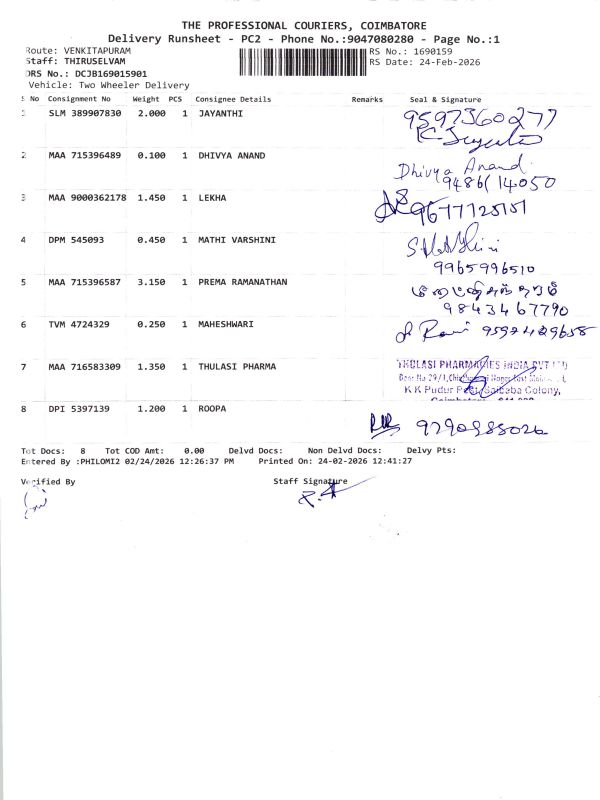 THE PROFESSIONAL COURIERS, COIMBATORE
Delivery Runsheet - PC2 - Phone No.:9047080280 - Page No.:1
Route: VENKITAPURAM
RS No.: 1690159
Staff: THIRUSELVAM
RS Date: 24-Feb-2026
DRS No.: DCJB169015901
Vehicle: Two Wheeler Delivery
S No Consignment No Weight PCS Consignee Details Remarks Seal & Signature
1 SLM 389907830 2.000 1 JAYANTHI 9597360277
2 MAA 715396489 0.100 1 DHIVYA ANAND Dhivya Anand
9486114050
3 MAA 9000362178 1.450 1 LEKHA 9677125151
4 DPM 545093 0.450 1 MATHI VARSHINI
9965996510
5 MAA 715396587 3.150 1 PREMA RAMANATHAN
9843467790
6 TVM 4724329 0.250 1 MAHESHWARI Ravi
7 MAA 716583309 1.350 1 THULASI PHARMA THULASI PHARMACIES INDIA PVT LTD
Door No 29/1, Nagar East
K K Pudur Post, Saibaba Colony,
8 DPI 5397139 1.200 1 ROOPA
Tot Docs: 8 Tot COD Amt: 0.00 Delvd Docs: Non Delvd Docs: Delvy Pts:
Entered By :PHILOMI2 02/24/2026 12:26:37 PM Printed On: 24-02-2026 12:41:27
Verified By Staff Signature